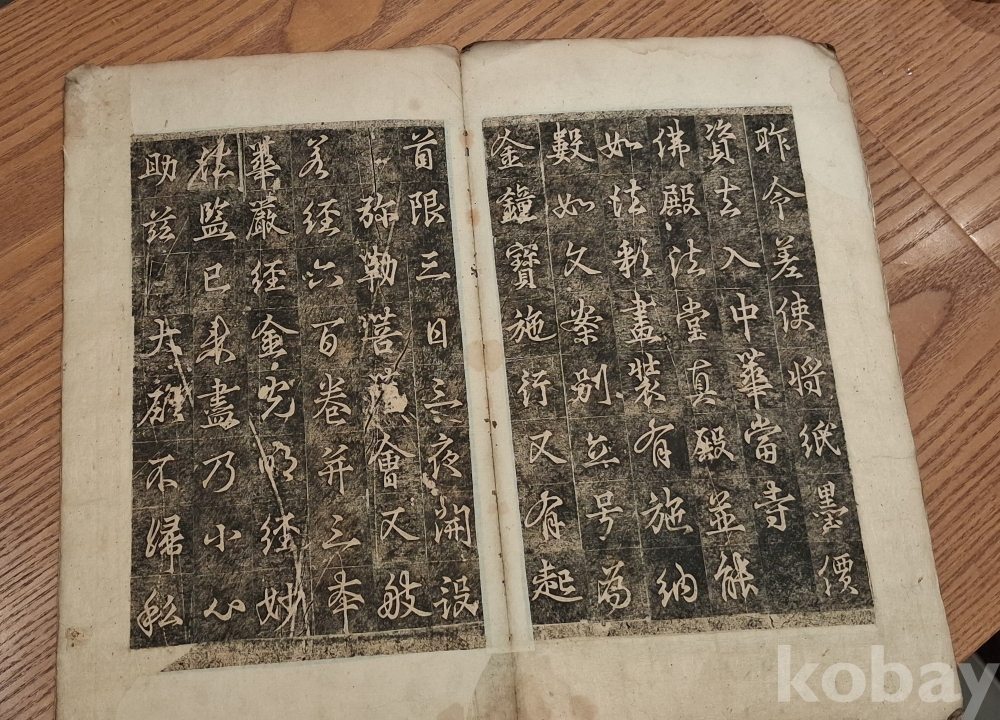 昨令差使將紙墨價
資去入中華當寺
佛殿法堂真殿並能
如法彩畫裝有施納
數如文案別立号為
金鐘寶施行又有起
首限三日三夜開設
弥勒菩薩會又般
若經六百卷并三本
華嚴經金光明經妙
監已来盡乃小心
助茲大願不歸私
kobay